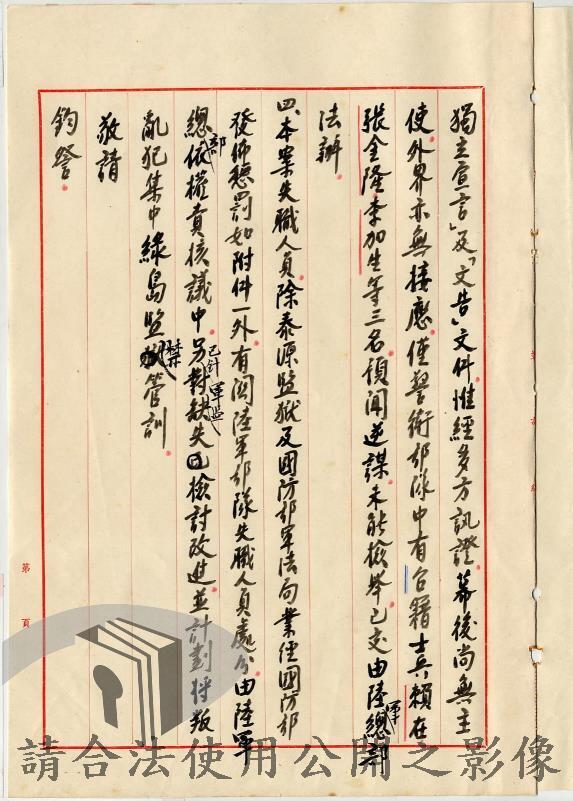 獨立宣言」及「文告」文件。惟經多方訊證。幕後尚無主
使。外界亦無接應。僅警衛部隊中有台籍士兵賴在
張金隆李加生等三名。預聞逆謀。未能檢舉。已交由陸軍總部
法辦。
四、本案失職人員。除泰源監獄及國防部軍法局業經國防部
發佈懲罰如附件一外。有關陸軍部隊失職人員處分。由陸軍
總部依權責核議中。另對軍監缺失已針檢討改進。並計劃將叛
亂犯集中綠島監禁管訓。
敬請
鈞詧。
第 頁
請合法使用公開之影像